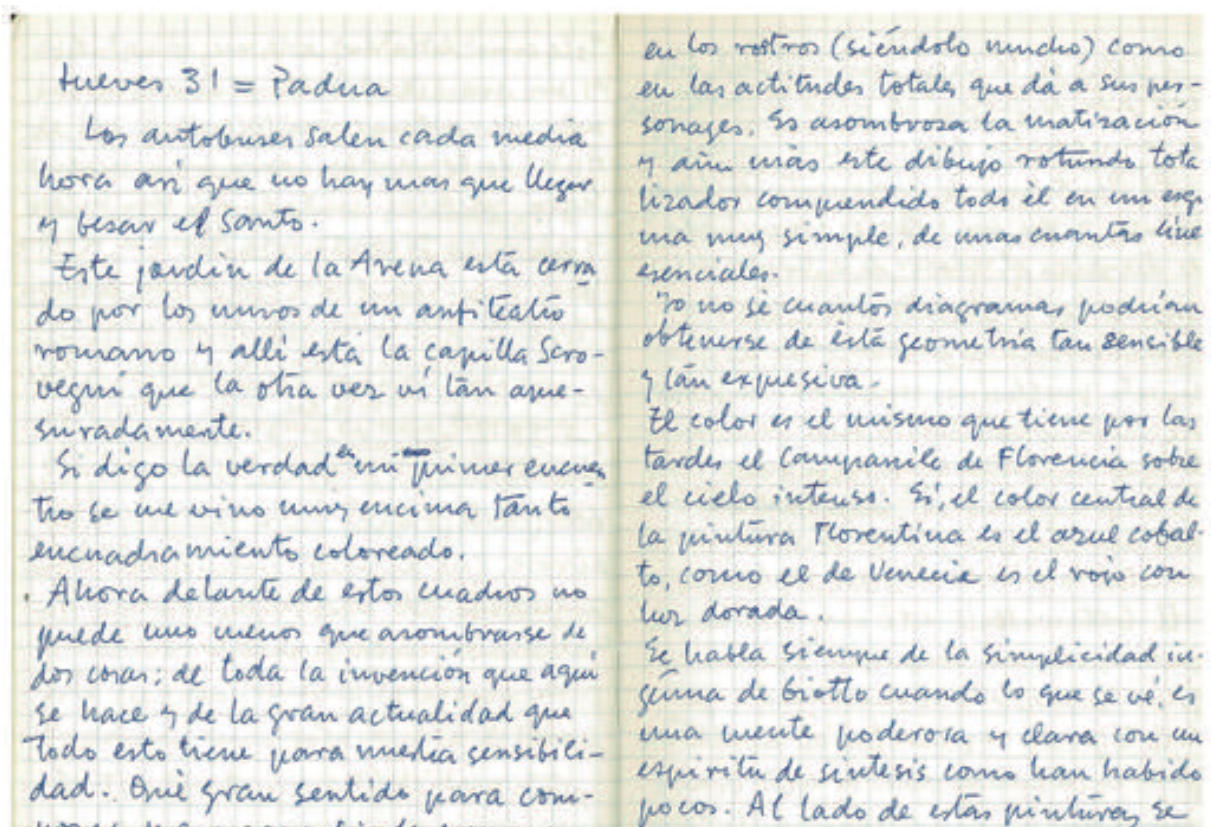 Jueves 31 = Padua
Los autobuses salen cada media
hora así que no hay mas que llegar
y besar el Santo.
Este jardin de la Arena está cerra
do por los muros de un anfiteatro
romano y alli está la capilla Scro-
vegni que la otra vez ví tan apre-
suradamente.
Si digo la verdad en mi primer encuen
tro se me vino muy encima tanto
encuadramiento coloreado.
. Ahora delante de estos cuadros no
puede uno menos que asombrarse de
dos cosas: de toda la invención que aquí
se hace y de la gran actualidad que
todo esto tiene para nuestra sensibili-
dad. Qué gran sentido para com-
en los rostros (siéndolo mucho) como
en las actitudes totales que dá a sus per-
sonages. Es asombrosa la matización
y aún más este dibujo rotundo tota
lizador comprendido todo él en un esqe
ma muy simple, de unas cuantas line
esenciales.
Yo no sé cuantos diagramas podrían
obtenerse de ésta geometría tan sensible
y tán expresiva.
El color es el mismo que tiene por las
tardes el Campanile de Florencia sobre
el cielo intenso. Sí, el color central de
la pintura Florentina es el azul cobal-
to, como el de Venecia es el rojo con
luz dorada.
Se habla siempre de la simplicidad in-
génua de Giotto cuando lo que se vé, es
una mente poderosa y clara con un
espíritu de síntesis como han habido
pocos. Al lado de estas pinturas, se